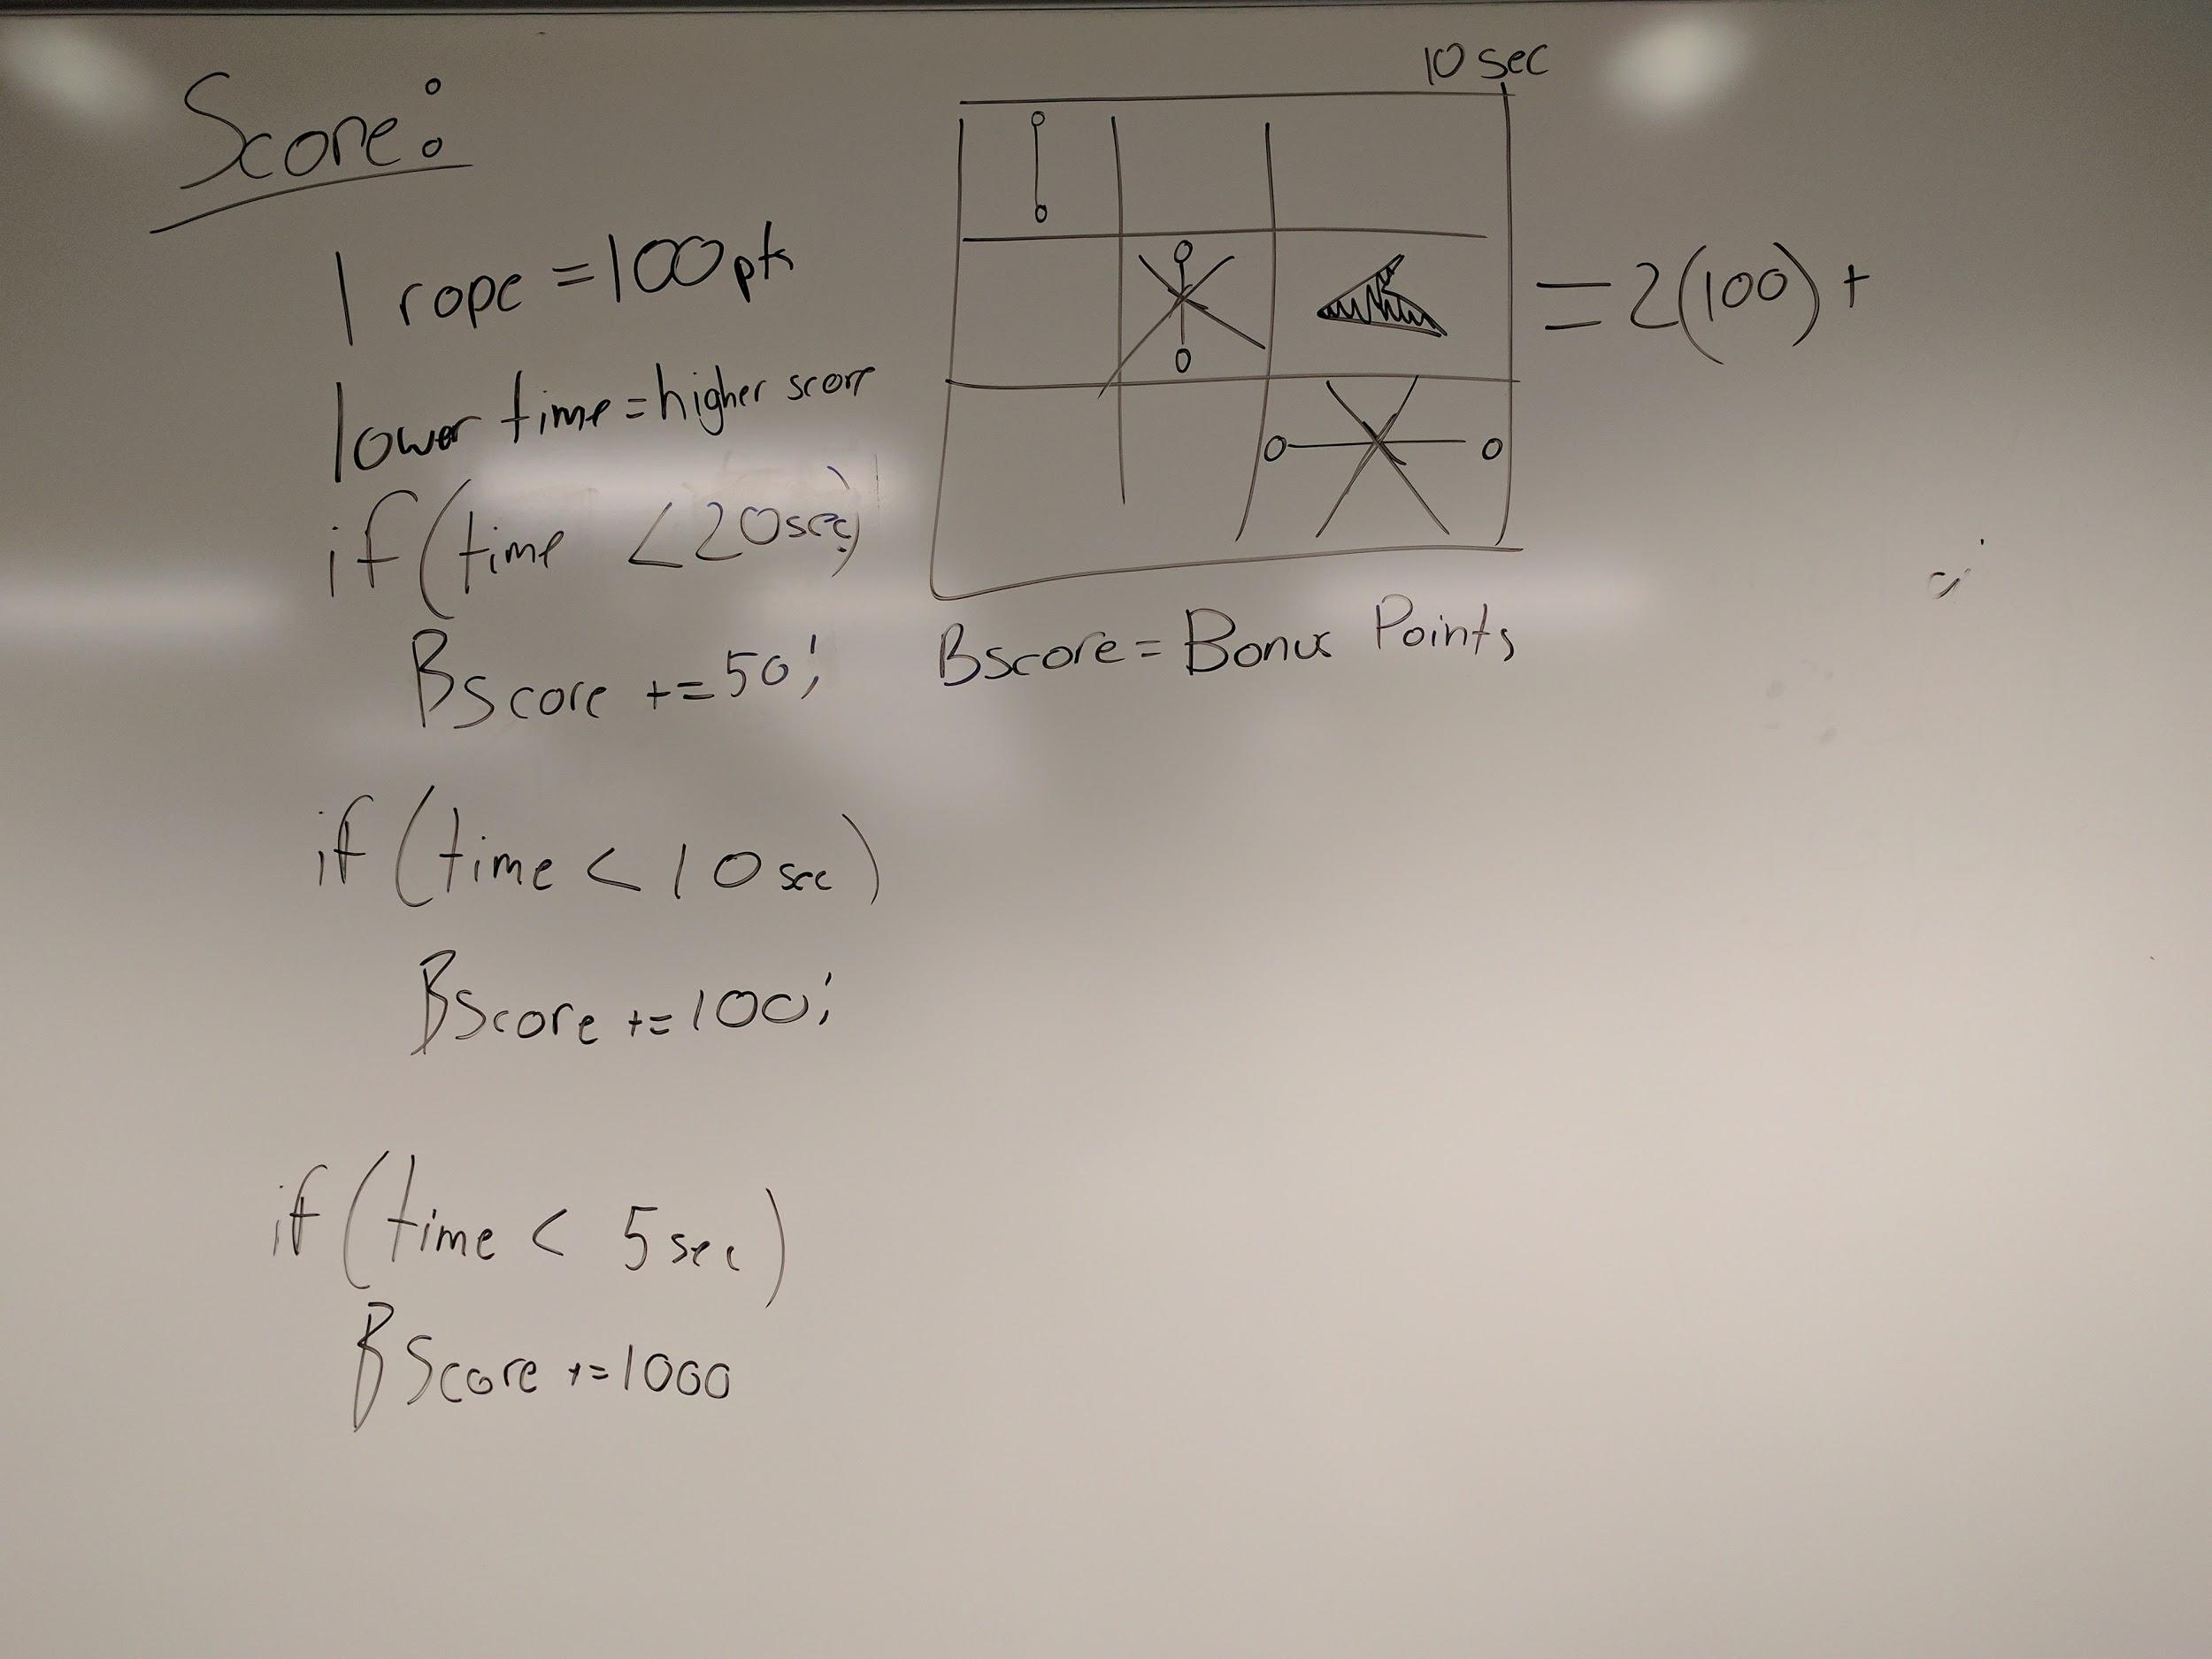 Score:
1 rope = 100 pts
lower time = higher score
if (time < 20sec)
Bscore += 50;
if (time < 10 sec)
BScore += 100;
if (time < 5 sec)
BScore += 1000
10 sec
= 2(100) +
Bscore = Bonus Points